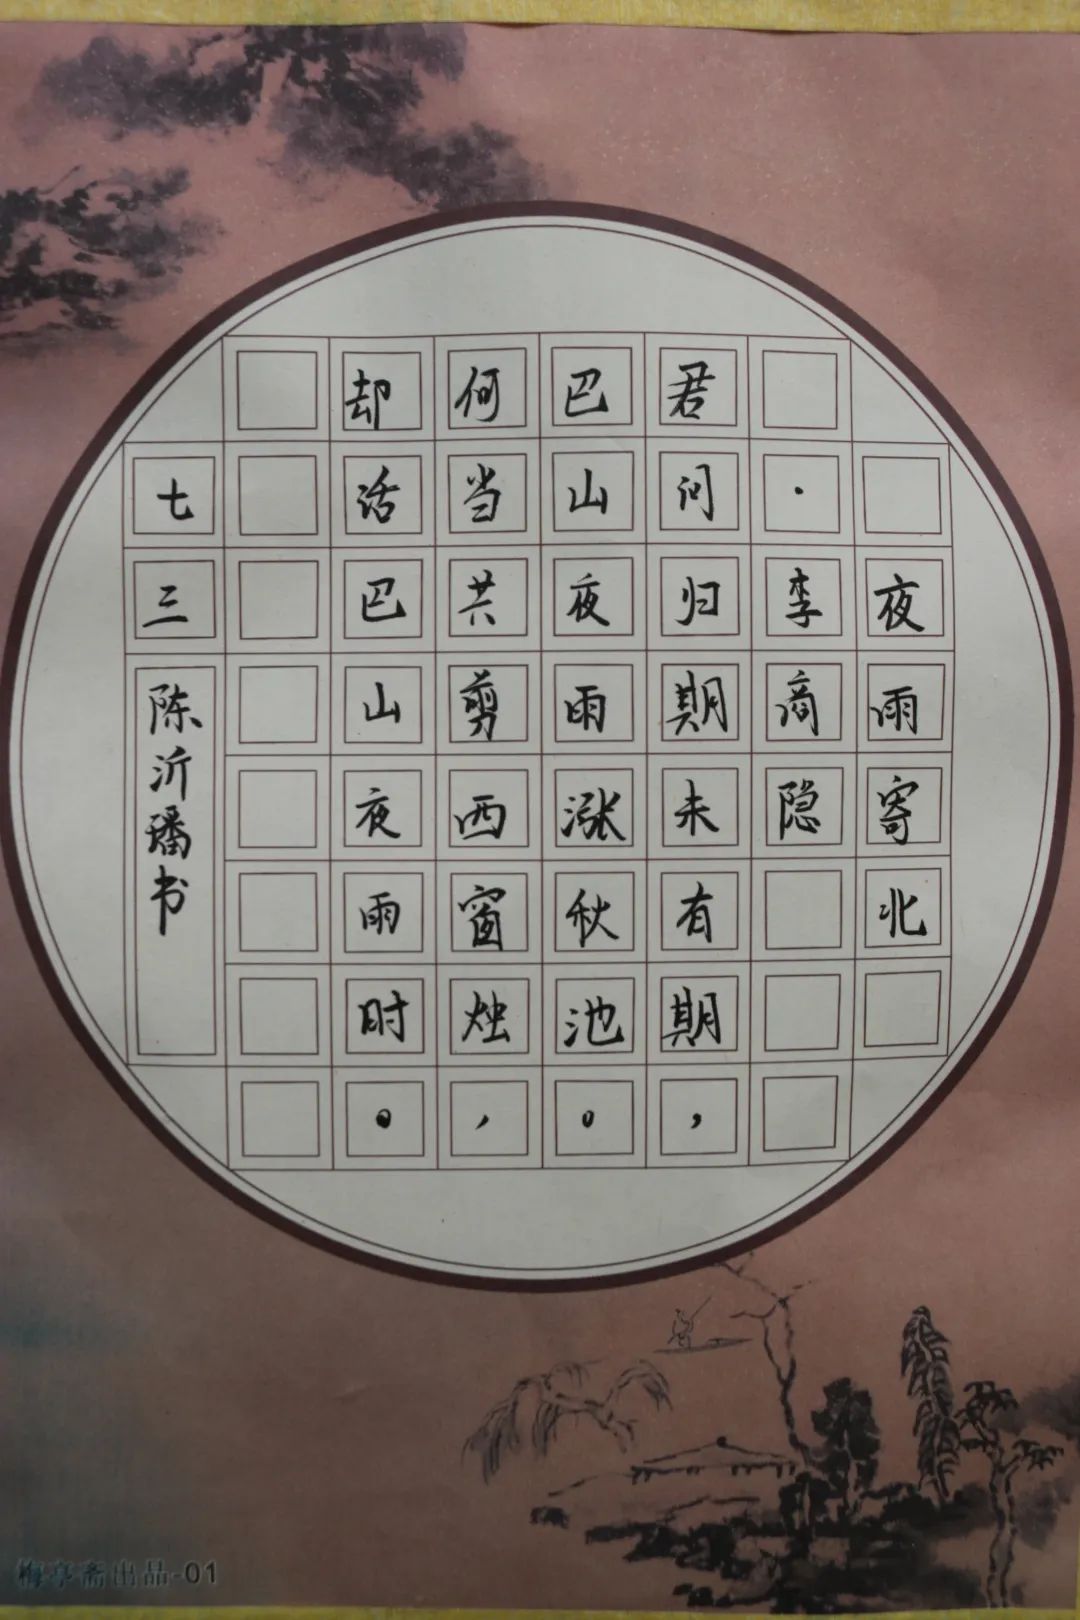 夜雨寄北
·李商隐
君问归期未有期，
巴山夜雨涨秋池。
何当共剪西窗烛，
却话巴山夜雨时。
七三
陈沂璠书
梅亭斋出品-01